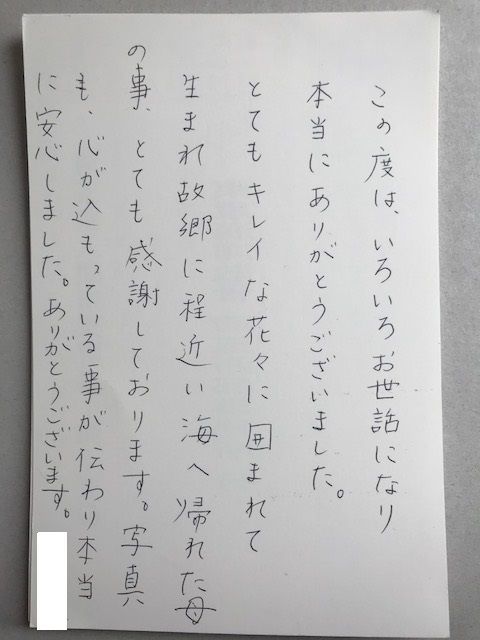 この度は、いろいろお世話になり
本当にありがとうございました。
とてもキレイな花々に囲まれて
生まれ故郷に程近い海へ帰れた母
の事、とても感謝しております。写真
も、心が込もっている事が伝わり本当
に安心しました。ありがとうございます。